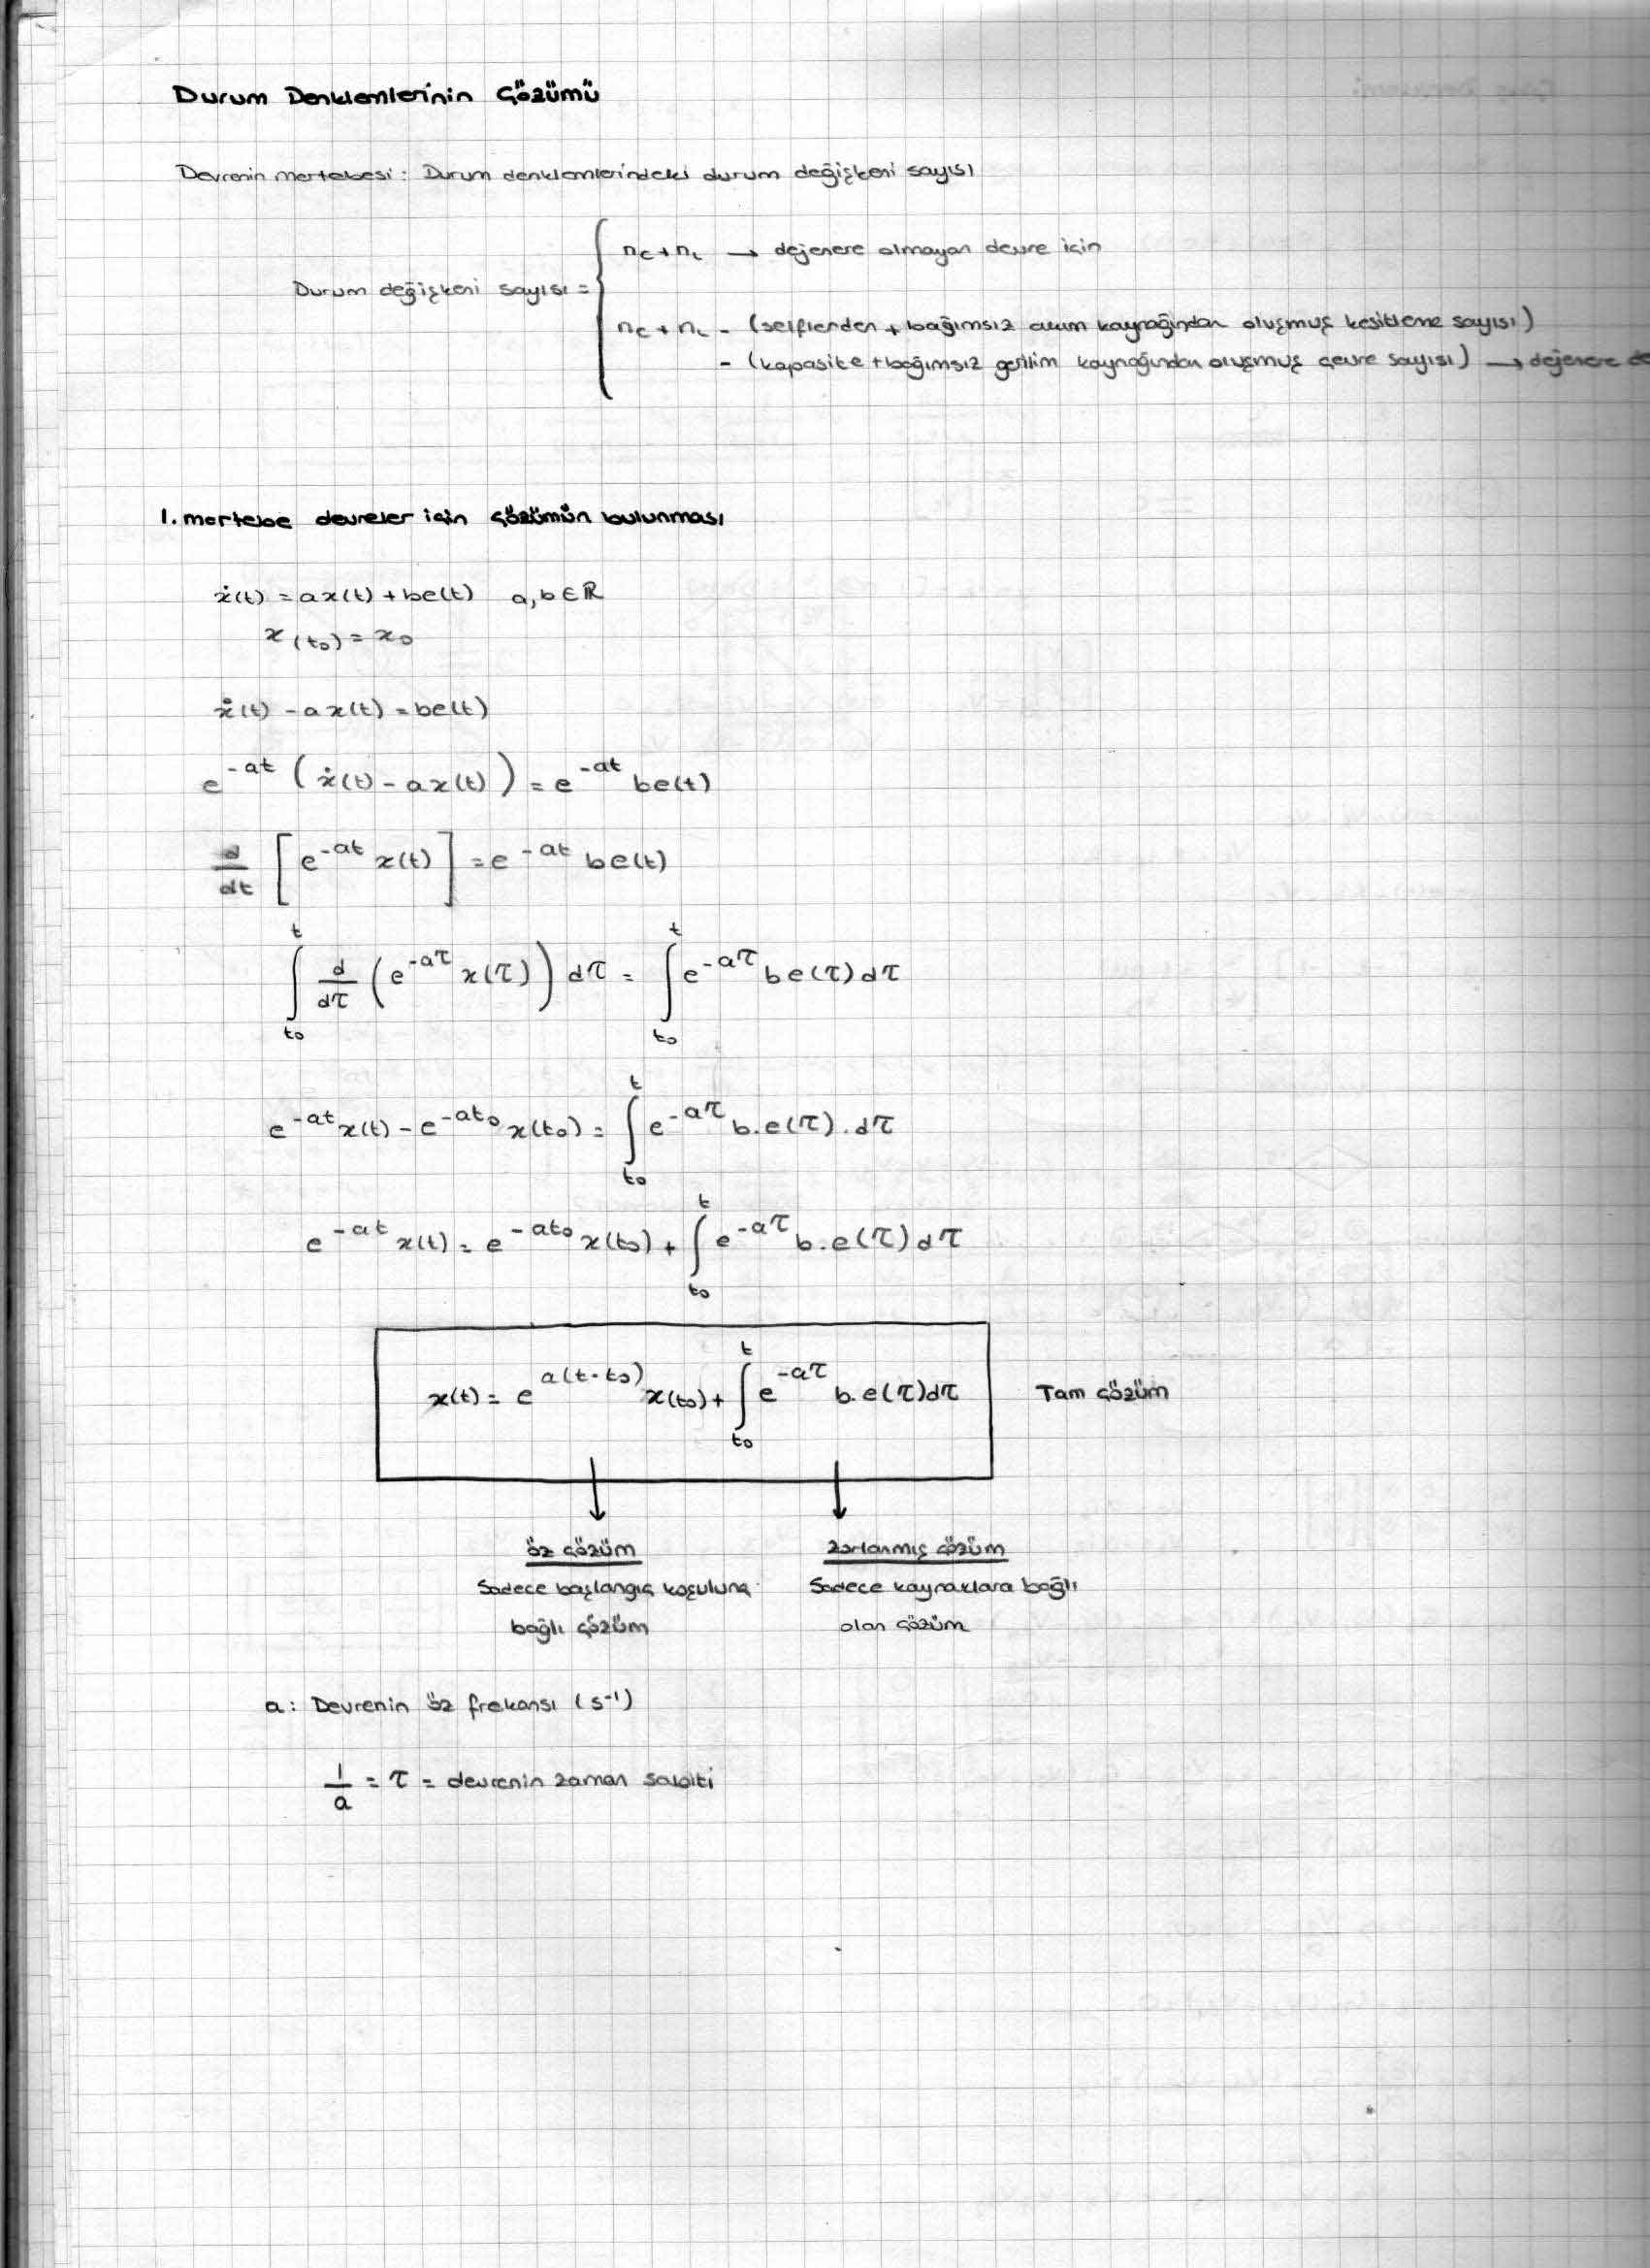 Durum Denklemlerinin Çözümü
Devrenin mertebesi: Durum denklemlerindeki durum değişkeni sayısı
Durum değişkeni sayısı = { n_C + n_L → dejenere olmayan devre için
n_C + n_L - (selflerden + bağımsız akım kaynağından oluşmuş kesitleme sayısı)
- (kapasite + bağımsız gerilim kaynağından oluşmuş çevre sayısı) → dejenere de
1. mertebe devreler için çözümün bulunması
ẋ(t) = ax(t) + be(t) a, b ∈ ℝ
x(t₀) = x₀
ẋ(t) - ax(t) = be(t)
e^{-at} (ẋ(t) - ax(t)) = e^{-at} be(t)
d/dt [e^{-at} x(t)] = e^{-at} be(t)
∫_{t₀}^{t} d/dτ (e^{-aτ} x(τ)) dτ = ∫_{t₀}^{t} e^{-aτ} be(τ) dτ
e^{-at} x(t) - e^{-at₀} x(t₀) = ∫_{t₀}^{t} e^{-aτ} b.e(τ).dτ
e^{-at} x(t) = e^{-at₀} x(t₀) + ∫_{t₀}^{t} e^{-aτ} b.e(τ) dτ
x(t) = e^{a(t-t₀)} x(t₀) + ∫_{t₀}^{t} e^{-aτ} b.e(τ)dτ Tam çözüm
öz çözüm zorlanmış çözüm
Sadece başlangıç koşuluna Sadece kaynaklara bağlı
bağlı çözüm olan çözüm
a: Devrenin öz frekansı (s⁻¹)
1/a = τ = devrenin zaman sabiti